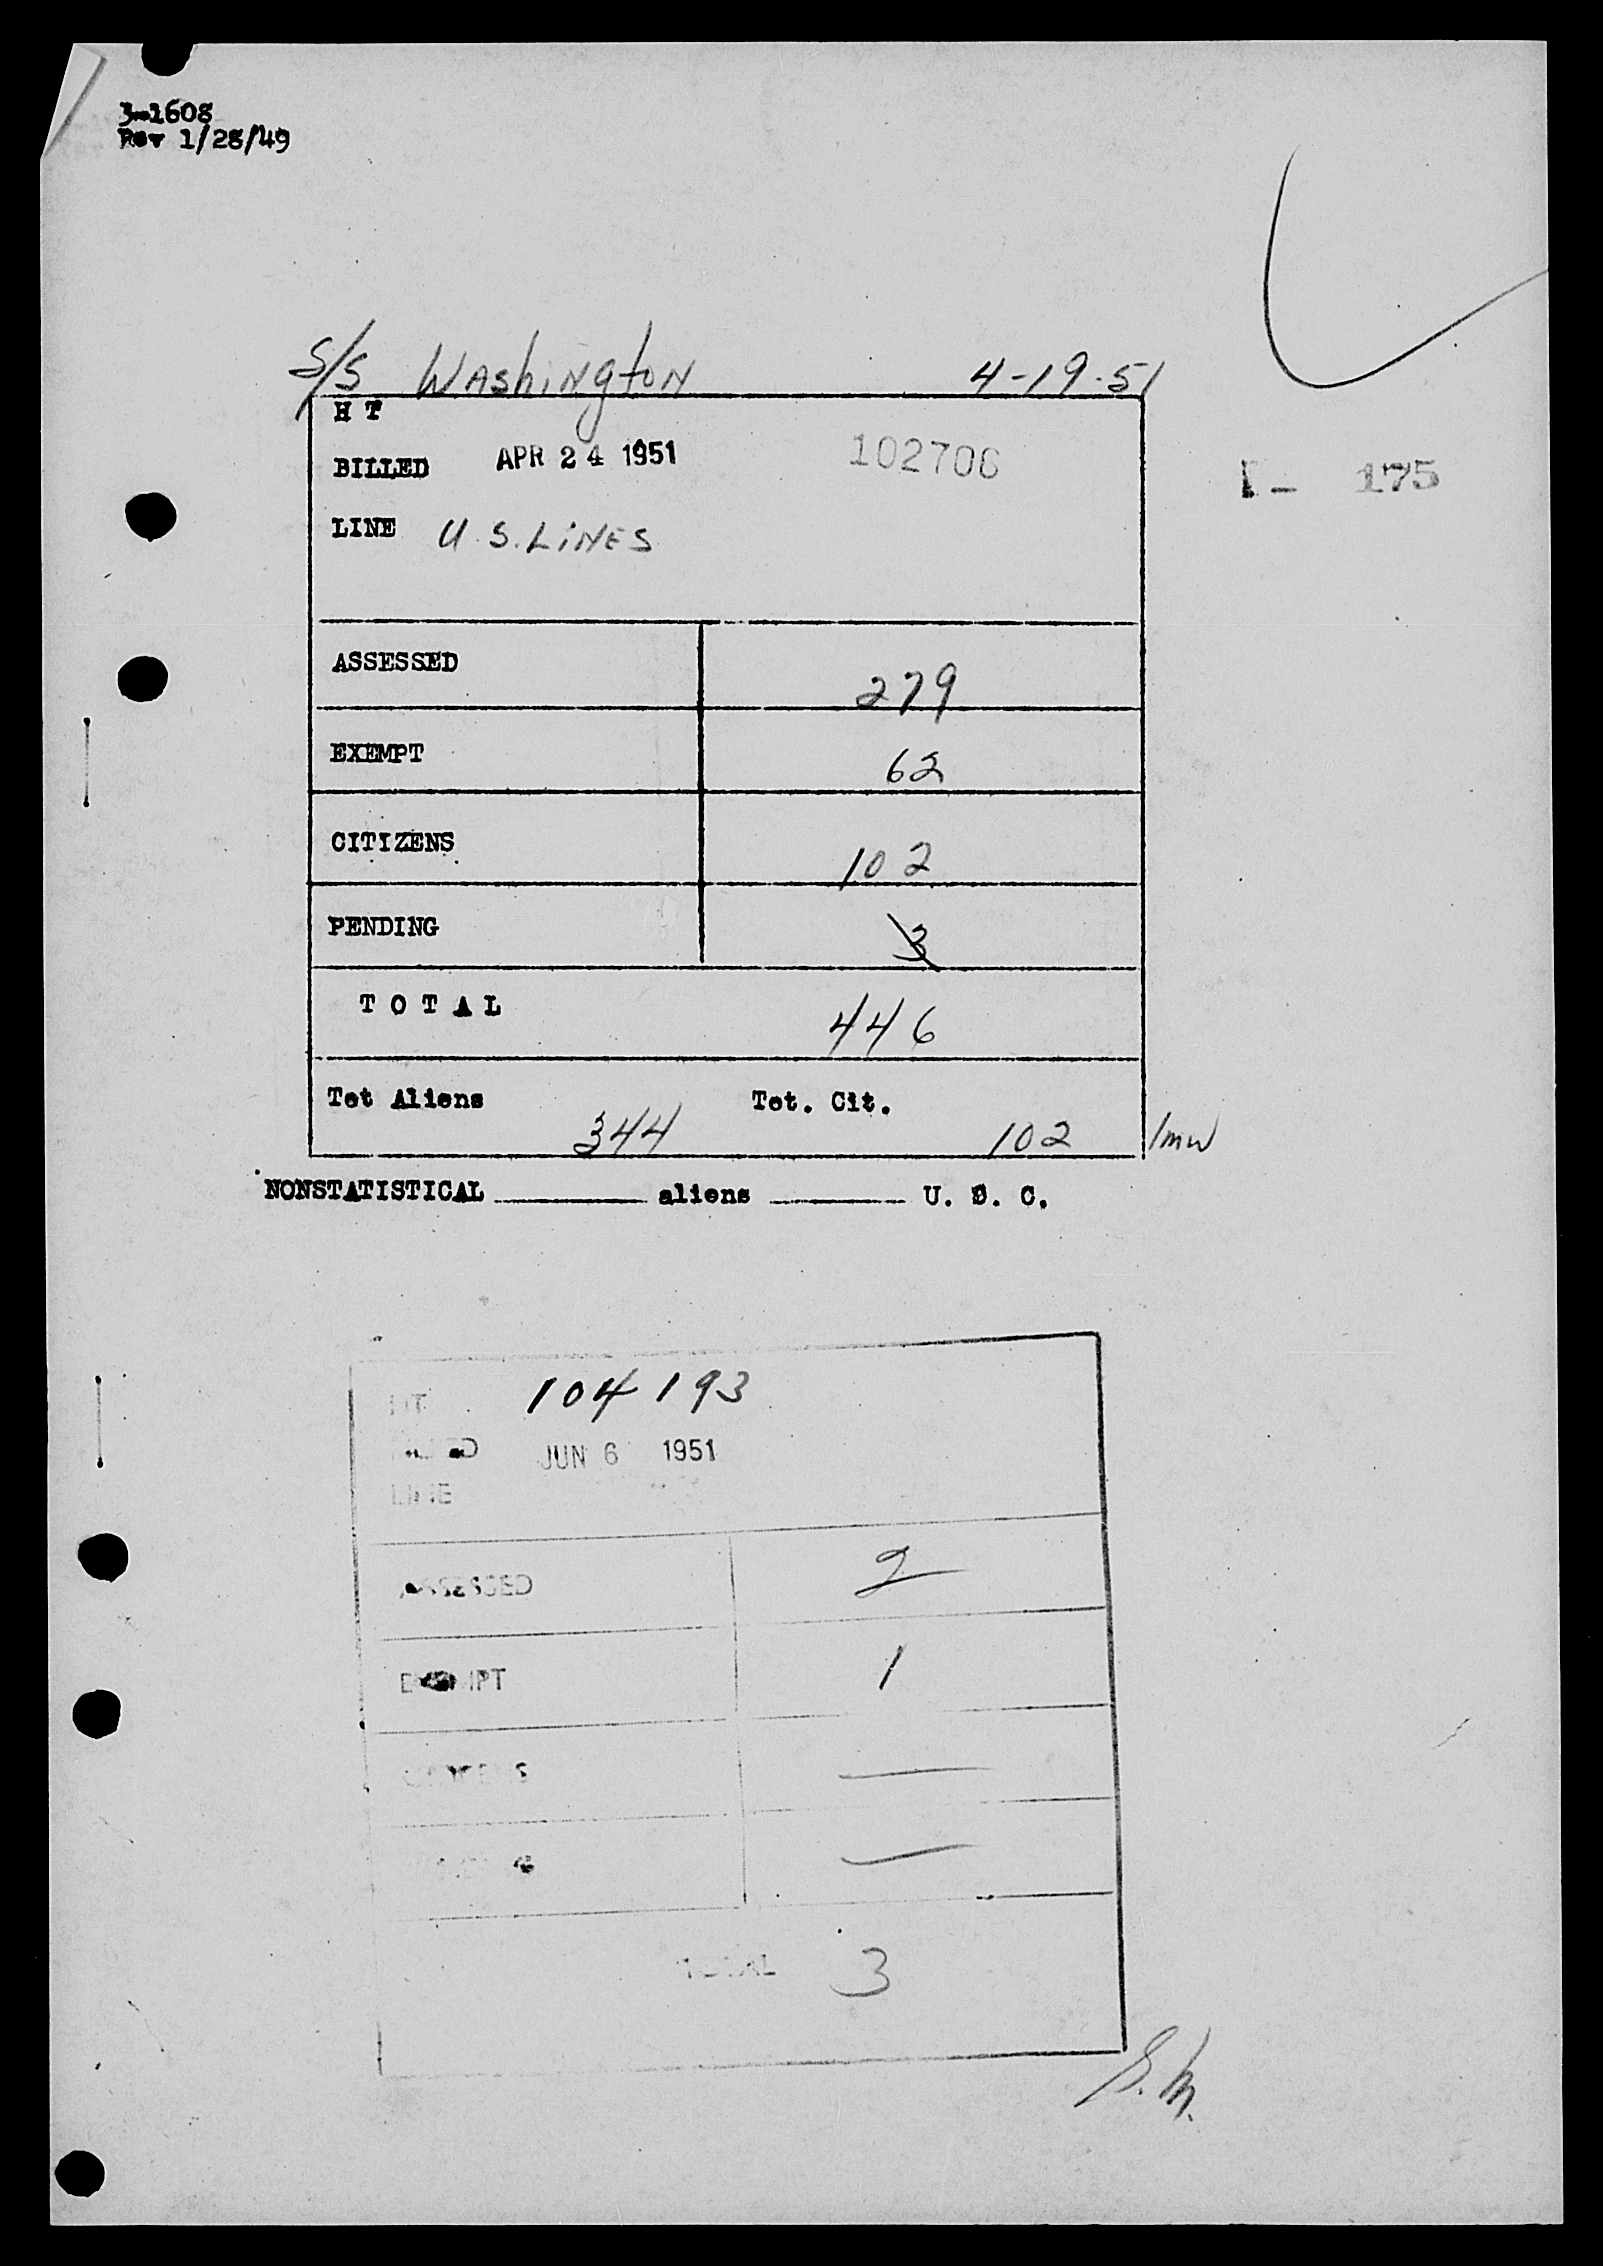 3-1608
Rev 1/28/49
S/S Washington 4-19-51
H T
BILLED APR 24 1951 102706
I- 175
LINE U.S. LINES
ASSESSED 279
EXEMPT 62
CITIZENS 102
PENDING 3
TOTAL 446
Tot Aliens 344 Tot. Cit. 102 /mw
NONSTATISTICAL ______ aliens ______ U. S. C.
HT 104193
JUN 6 1951
LINE
ASSESSED 2
EXEMPT 1
CITIZENS —
—
TOTAL 3
S.M.